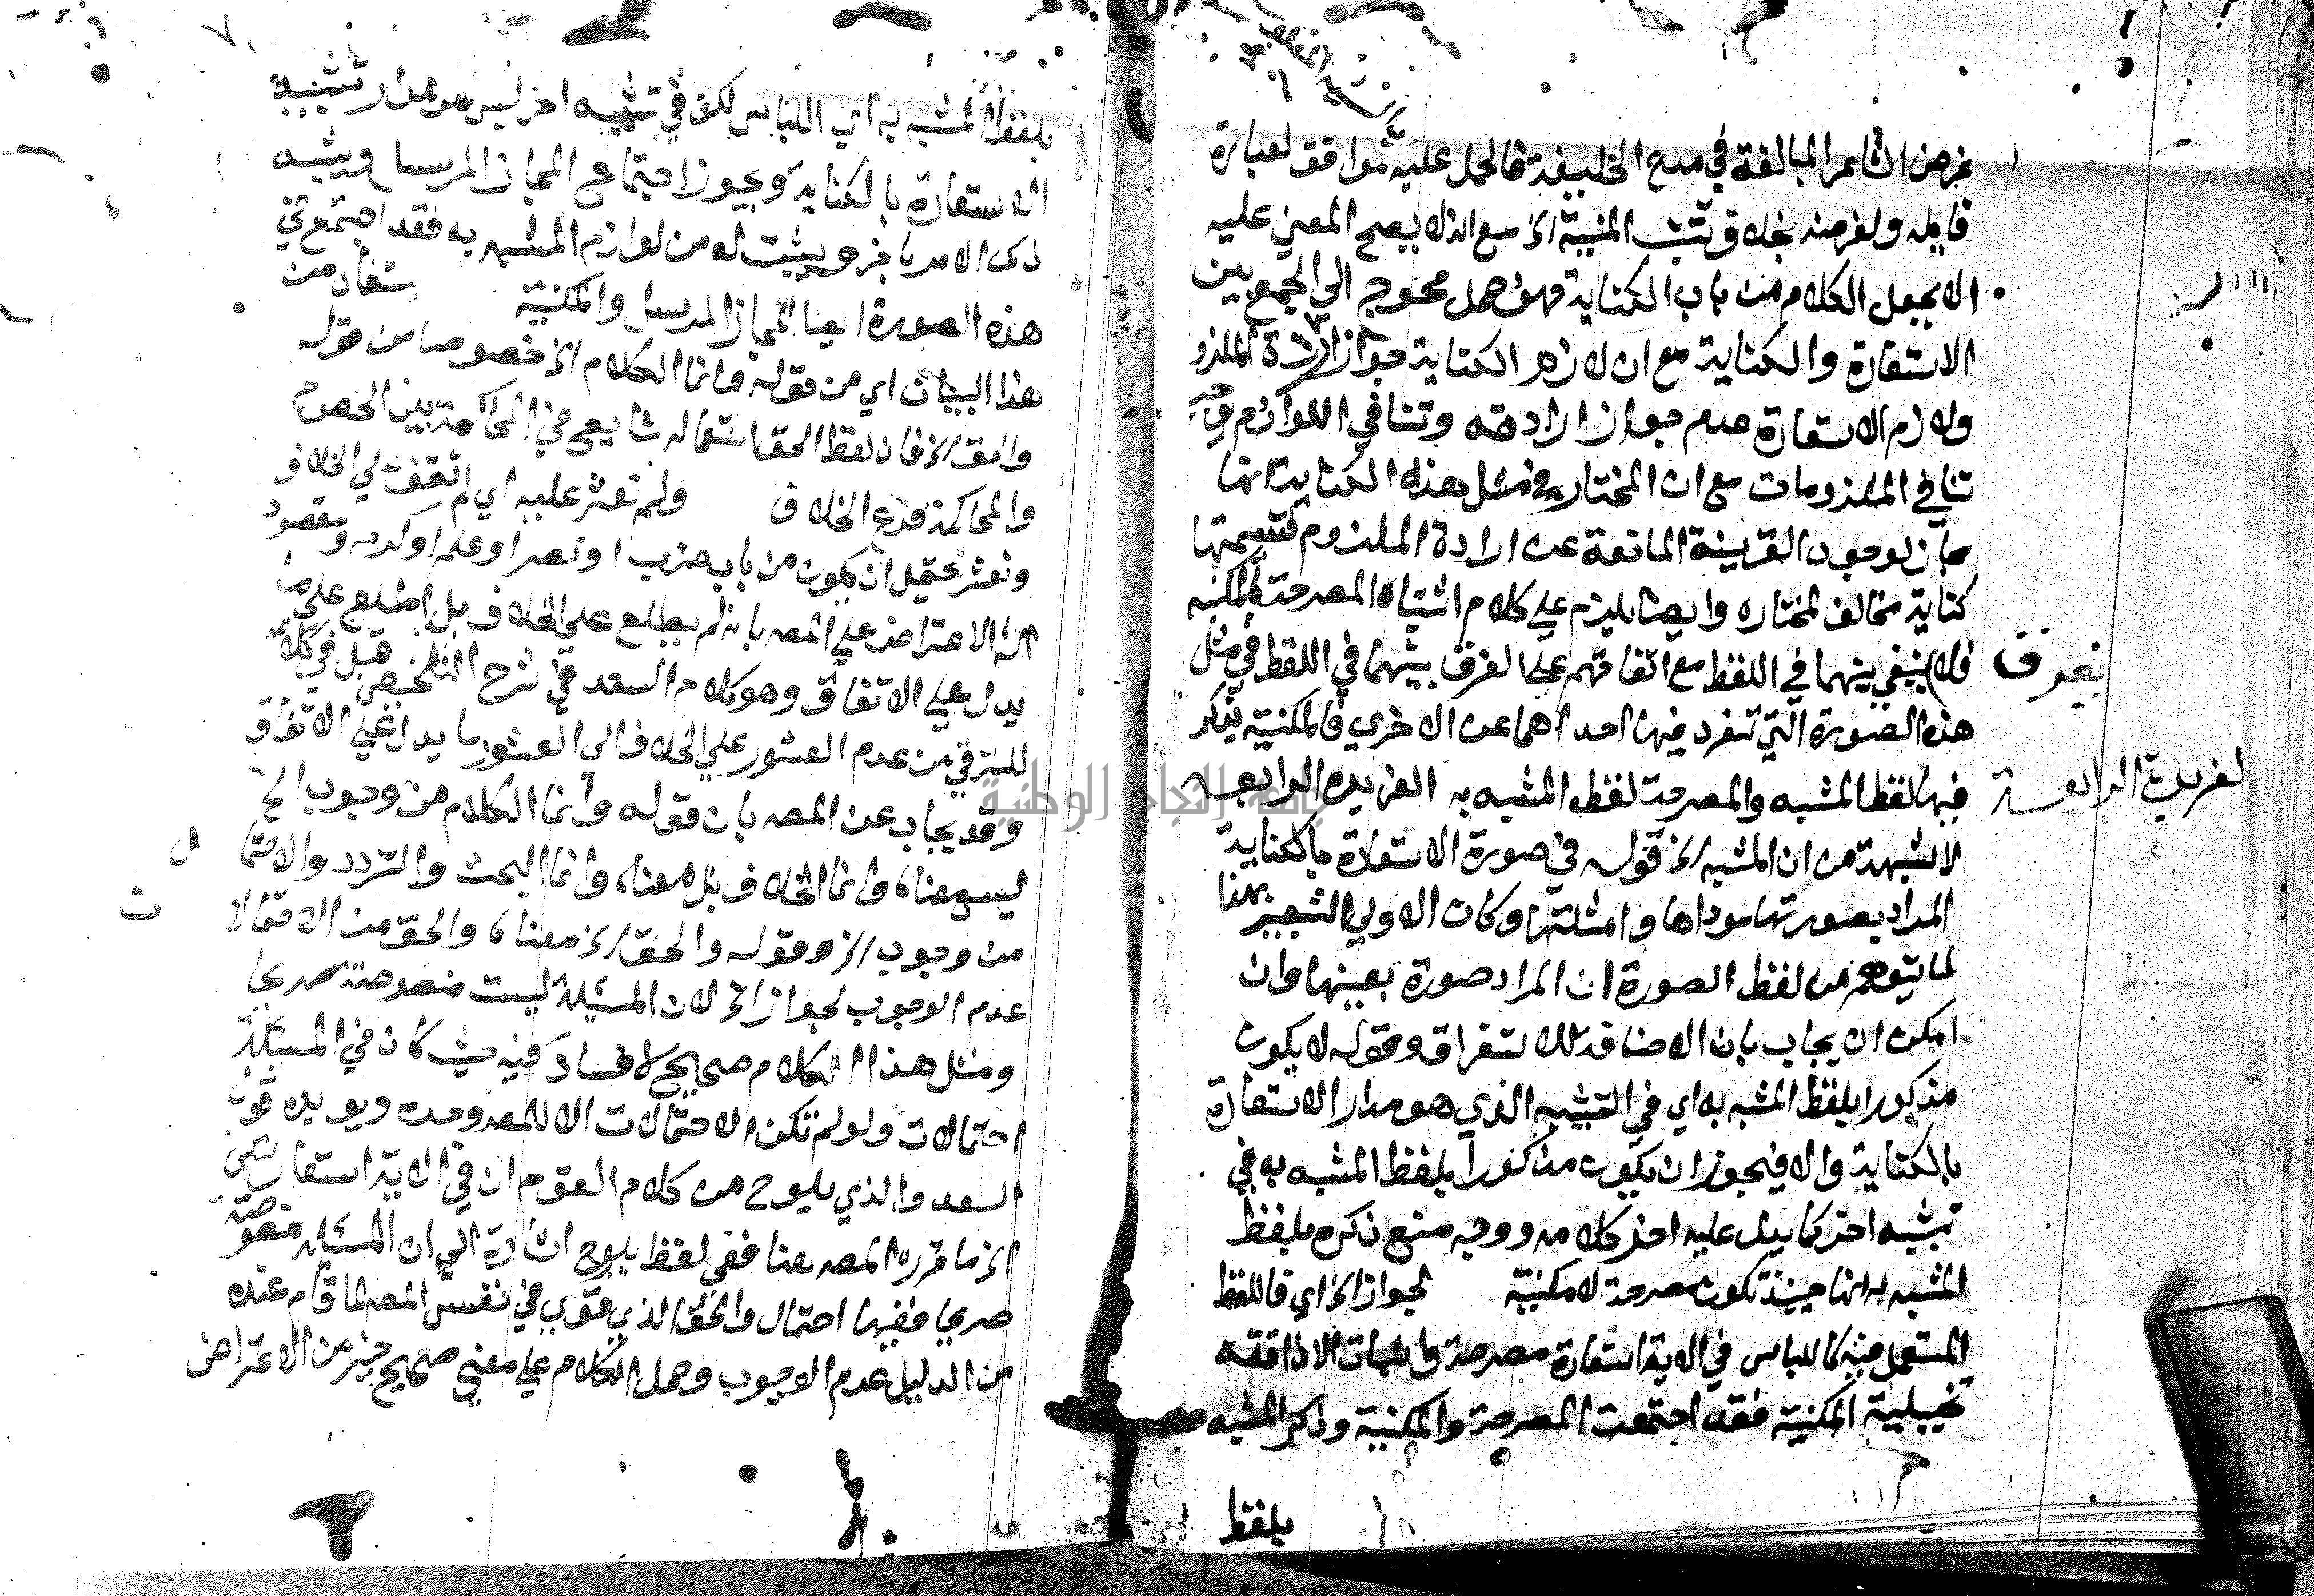 غرض الشاعر المبالغة في مدح الخليفة فالحمل عليه موافق لعبارة
قايله ولغرضه بخلاف تشب المنية الخ مع انه لا يصح المعني عليه
الا بجعل الكلام من باب الكناية فهو حمل محوج الي الجمع بين
الاستعارة والكناية مع ان لازم الكناية جواز ارادة الملزوم
ولازم الاستعارة عدم جواز ارادته وتنافي اللوازم يوجب
تنافي الملزومات مع ان المختار في مثل هذه الكناية انها
مجاز لوجود القرينة المانعة عن ارادة الملزوم فتسميتها
كناية مخالف لمختاره وايضا يلزم علي كلام اشتباه المصرحة بالمكنية
فلا ينبغي بينهما في اللفظ مع اتفاقهم علي الفرق بينهما في اللفظ في مثل
هذه الصورة التي تنفرد فيها احداهما عن الاخري فالمكنية يذكر
فيها لفظ المشبه والمصرحة لفظ المشبه به الفريدة الرابعة
الفريدة الرابعة
لا شبهة من ان المشبه الخ قوله في صورة الاستعارة بالكناية
المراد بصورتها موادها وامثلتها وكان الاولي التعبير بهذا
لما يتوهم من لفظ الصورة ان المراد صورة بعينها وان
امكن ان يجاب بان الاضافة للاستغراق وقوله لا يكون
مذكورا بلفظ المشبه به اي في التشبيه الذي هو مدار الاستعارة
بالكناية والا فيجوز ان يكون مذكورا بلفظ المشبه به في
تشبيه اخر كما يدل عليه اخر كلامه ووجه منع ذكره بلفظ
المشبه به انها حينئذ تكون مصرحة لا مكنية لجواز الخ اي فاللفظ
المستعمل فيه كاللباس في الاية استعارة مصرحة واثبات الاذاقة
تخييلية المكنية فقد اجتمعت المصرحة والمكنية وذكر المشبه
بلفظ
بلفظ المشبه به اي اللباس لكن في تشبيه اخر ليس هو مدار تشبيه
الاستعارة بالكناية ويجوز اجتماع المجاز المرسل ويشبه
ذلك الامر باخر ويثبت له من لوازم المشبه به فقد اجتمع في
هذه الصورة ايضا المجاز المرسل والمكنية ستفاد من
هذا البيان اي من قوله وانما الكلام الخ خصوصا من قوله
والحق الخ فان لفظ الحق استعماله شايع في المحاكمة بين الخصوم
والمحاكمة فرع الخلاف ولم نعثر عليه اي لم نقف علي الخلاف
ونعثر يحتمل ان يكون من باب ضرب او نصر او علم او كرم ومقصود
الاعتراض علي المصه بانه لم يطلع علي الخلاف بل اطلع علي ما
يدل علي الاتفاق وهو كلام السعد في شرح التلخيص قبل في كلامه
للترقي من عدم العشور علي الخلاف الي العشور ما يدل علي الاتفاق
وقد يجاب عن المصه بان قوله وانما الكلام من وجوب الخ
ليس معناه وانما الخلاف بل معناه وانما البحث والتردد والاحتمال
من وجوب الخ وقوله والحق الخ معناه والحق من الاحتمالات
عدم الوجوب لجواز الخ لان المسئلة ليست منصوصة صريحا
ومثل هذا الكلام صحيح لا فساد فيه حيث كان في المسئلة
احتمالات ولو لم تكن الاحتمالات الا للمصه وحده ويويده قول
السعد والذي يلوح من كلام القوم ان في الاية استعارتين
الخ ما قرره المصه هنا ففي لفظ يلوح اشارة الي ان المسئلة منصوصة
صريحا ففيها احتمال والحق الذي قوي في نفس المصه لما قام عنده
من الدليل عدم الوجوب وحمل الكلام علي معني صحيح خير من الاعتراض
جامعة النجاح الوطنية